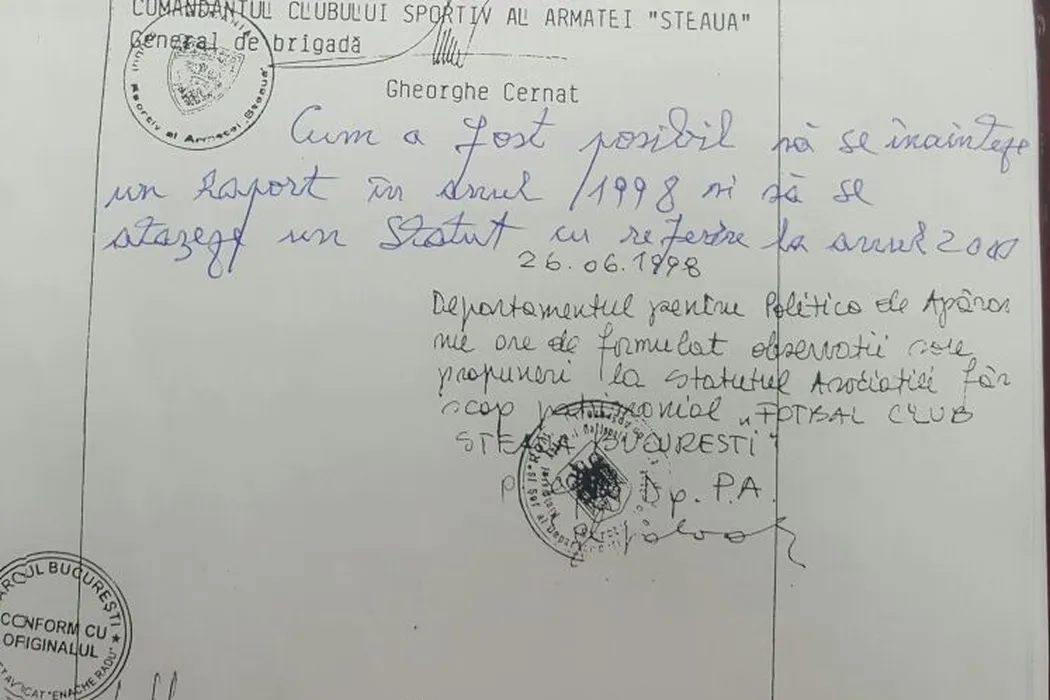 COMANDANTUL CLUBULUI SPORTIV AL ARMATEI "STEAUA"
General de brigadă
Gheorghe Cernat
Sportiv al Armatei "Steaua"
Cum a fost posibil să se înainteze
un Raport în anul /1998 și să se
atașeze un Statut cu referire la anul 2000
26.06.1998
Departamentul pentru Politica de Apărare
nu are de formulat observații sau
propuneri la statutul Asociației făr
scop patrimonial „FOTBAL CLUB
STEAUA BUCUREȘTI"
Dp. P.A.
BAROUL BUCUREȘTI
CONFORM CU
ORIGINALUL
AVOCAT "ENACHE RADU"